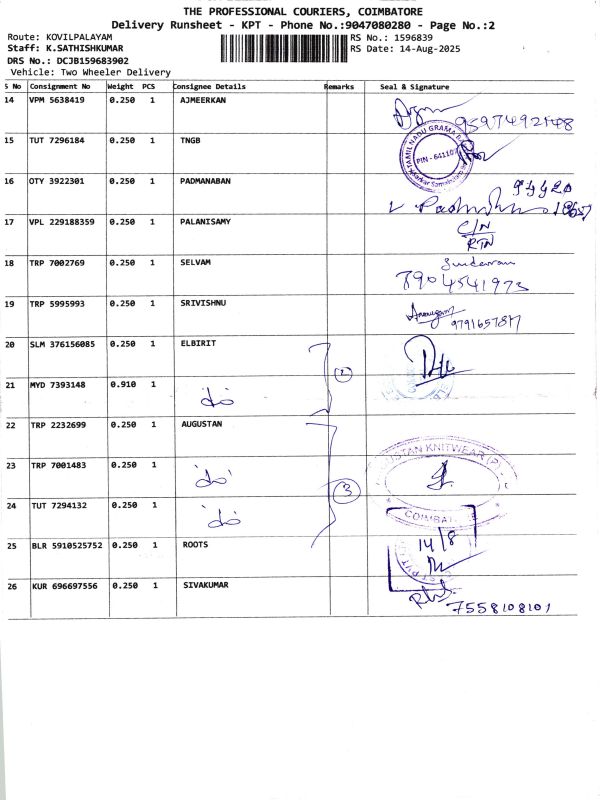 THE PROFESSIONAL COURIERS, COIMBATORE
Delivery Runsheet - KPT - Phone No.:9047080280 - Page No.:2
Route: KOVILPALAYAM
RS No.: 1596839
Staff: K.SATHISHKUMAR
RS Date: 14-Aug-2025
DRS No.: DCJB159683902
Vehicle: Two Wheeler Delivery
S No Consignment No Weight PCS Consignee Details Remarks Seal & Signature
14 VPM 5638419 0.250 1 AJMEERKAN
15 TUT 7296184 0.250 1 TNGB
TAMIL NADU GRAMA
PIN - 641107
16 OTY 3922301 0.250 1 PADMANABAN
17 VPL 229188359 0.250 1 PALANISAMY C/N
RTN
18 TRP 7002769 0.250 1 SELVAM
7904541973
19 TRP 5995993 0.250 1 SRIVISHNU
20 SLM 376156085 0.250 1 ELBIRIT
21 MYD 7393148 0.910 1 "do"
22 TRP 2232699 0.250 1 AUGUSTAN
23 TRP 7001483 0.250 1 "do" 3
KNITWEAR (P)
24 TUT 7294132 0.250 1 "do"
25 BLR 5910525752 0.250 1 ROOTS 14/8
26 KUR 696697556 0.250 1 SIVAKUMAR
7558108101